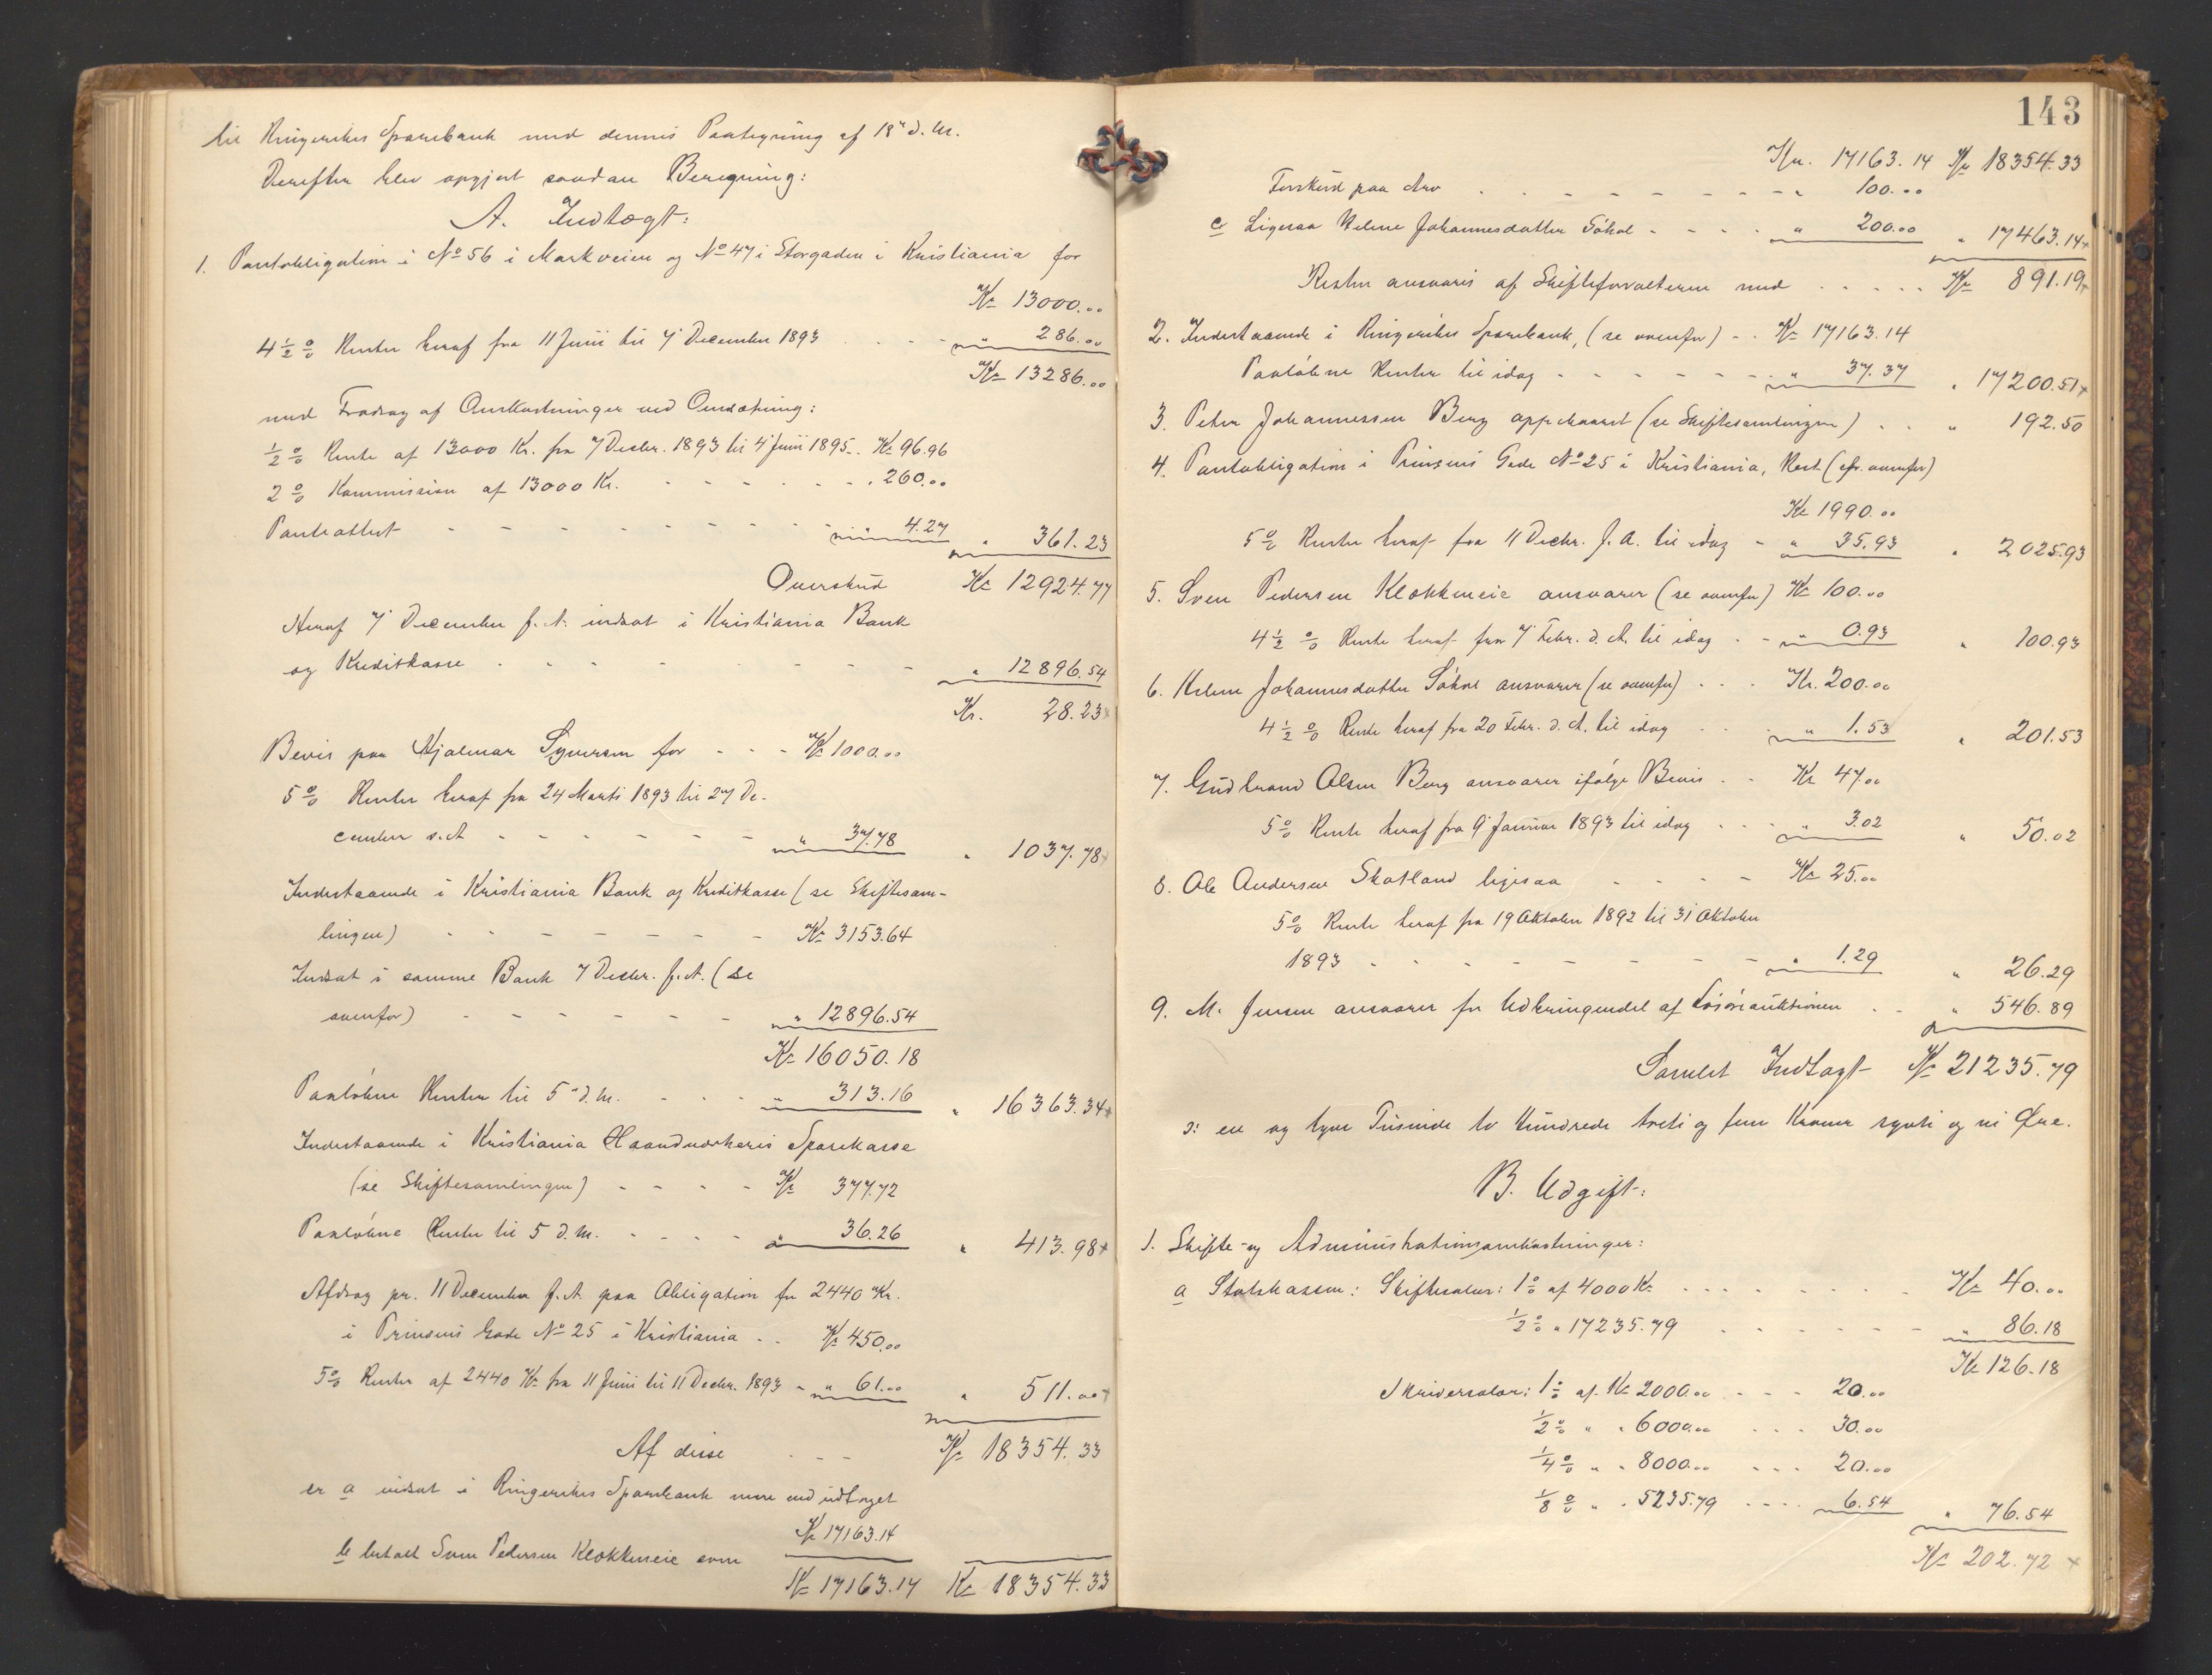 til Ringerikes Sparebank med dennes Paategning af 18de d. M.
Derefter blev opgjort saadan Beregning:
A. Indtægt:
1. Pantobligation i No 56 i Markveien og No 47 i Storgaden i Kristiania for
Kr 13000.00
4 1/2 % Renter heraf fra 11 Juni til 7 December 1893 . . . " 286.00
Kr 13286.00
med Fradrag af Omkostninger ved Omsætning:
1/2 % Rente af 13000 Kr. fra 7 Decbr. 1893 til 4 Juni 1895 - Kr 96.96
2 % Kommission af 13000 Kr. - - - - - - " 260.00
Panteattest - - - - - - - - " 4.27 " 361.23
Overskud Kr 12924.77
Heraf 7 December f. A. indsat i Kristiania Bank
og Kreditkasse . . - - - - - " 12896.54
Kr. 28.23 x
Bevis paa Hjalmar Syversen for - - - Kr 1000.00
5 % Renter heraf fra 24 Marts 1893 til 27 De-
cember s. A - - - - - - - " 37.78 " 1037.78 x
Indestaaende i Kristiania Bank og Kreditkasse (se Skiftesam-
lingen) - - - - - - - Kr 3153.64
Indsat i samme Bank 7 Decbr. f. A. (se
ovenfor) - - - - - - " 12896.54
Kr 16050.18
Paaløbne Renter til 5 d. M. - - - " 313.16 " 16363.34 x
Indestaaende i Kristiania Haandværkeres Sparekasse
(se Skiftesamlingen) - - - - Kr 377.72
Paaløbne Renter til 5 d. M. - - - - " 36.26 " 413.98 x
Afdrag pr. 11 December f. A. paa Obligation for 2440 Kr.
i Prinsens Gade No 25 i Kristiania . . Kr 450.00
5 % Renter af 2440 Kr fra 11 Juni til 11 Decbr. 1893 - " 61.00 " 511.00 x
Af disse . . - Kr 18354.33
er a indsat i Ringerikes Sparebank mere end udtaget
Kr 17163.14
b betalt Sven Pedersen Klokkereie som
Kr 17163.14 Kr 18354.33
143
Kr. 17163.14 Kr 18354.33
Forskud paa Arv . . . - - - - - " 100.00
c Ligesaa Helene Johannesdatter - - - - " 200.00 " 17463.14 x
Resten ansvares af Skifteforvalteren med . . . . . Kr 891.19 x
2. Indestaaende i Ringerikes Sparebank, (se ovenfor) - - Kr 17163.14
Paaløbne Renter til idag - - - - - - " 37.37 " 17200.51 x
3. Peter Johannessen Berg oppebaaret (se Skiftesamlingen) . . " 192.50
4. Pantobligation i Prinsens Gade No 25 i Kristiania, Rest (cfr. ovenfor)
Kr 1990.00
5 % Renter heraf fra 11 Decbr. f. A. til idag - " 35.93 " 2025.93
5. Sven Pedersen Klokkereie ansvarer (se ovenfor) Kr 100.00
4 1/2 % Rente heraf fra 7 Febr. d. A. til idag - - " 0.93 " 100.93
6. Helene Johannesdatter ansvarer (se ovenfor) - - - Kr. 200.00
4 1/2 % Rente heraf fra 20 Febr. d. A. til idag . . " 1.53 " 201.53
7. Gudbrand Olsen Berg ansvarer ifølge Bevis - - Kr 47.00
5 % Rente heraf fra 9 Januar 1893 til idag . . - " 3.02 " 50.02
8. Ole Andersen Skotland ligesaa - - - - Kr 25.00
5 % Rente heraf fra 19 Oktober 1892 til 31 Oktober
1893 - - - - - - - - " 1.29 " 26.29
9. M. Jensen ansvarer for Udbringendet af Løsøreauktionen . . " 546.89
Samlet Indtægt Kr 21235.79
ɔ: en og tyve Tusinde to Hundrede treti og fem Kroner sytti og ni Øre.
B. Udgift:
1. Skifte- og Administrationsomkostninger:
a Statskassen: Skiftesalær: 1 % af 4000 Kr . . . . . . . . Kr 40.00
1/2 % " 17235.79 . . . . . - - " 86.18
Kr 126.18
Skriversalær: 1 % af Kr 2000.00 - - - 20.00
1/2 % " " 6000.00 . . . 30.00
1/4 % " " 8000.00 - - - 20.00
1/8 % " " 5235.79 - - - - 6.54 " 76.54
Kr 202.72 x